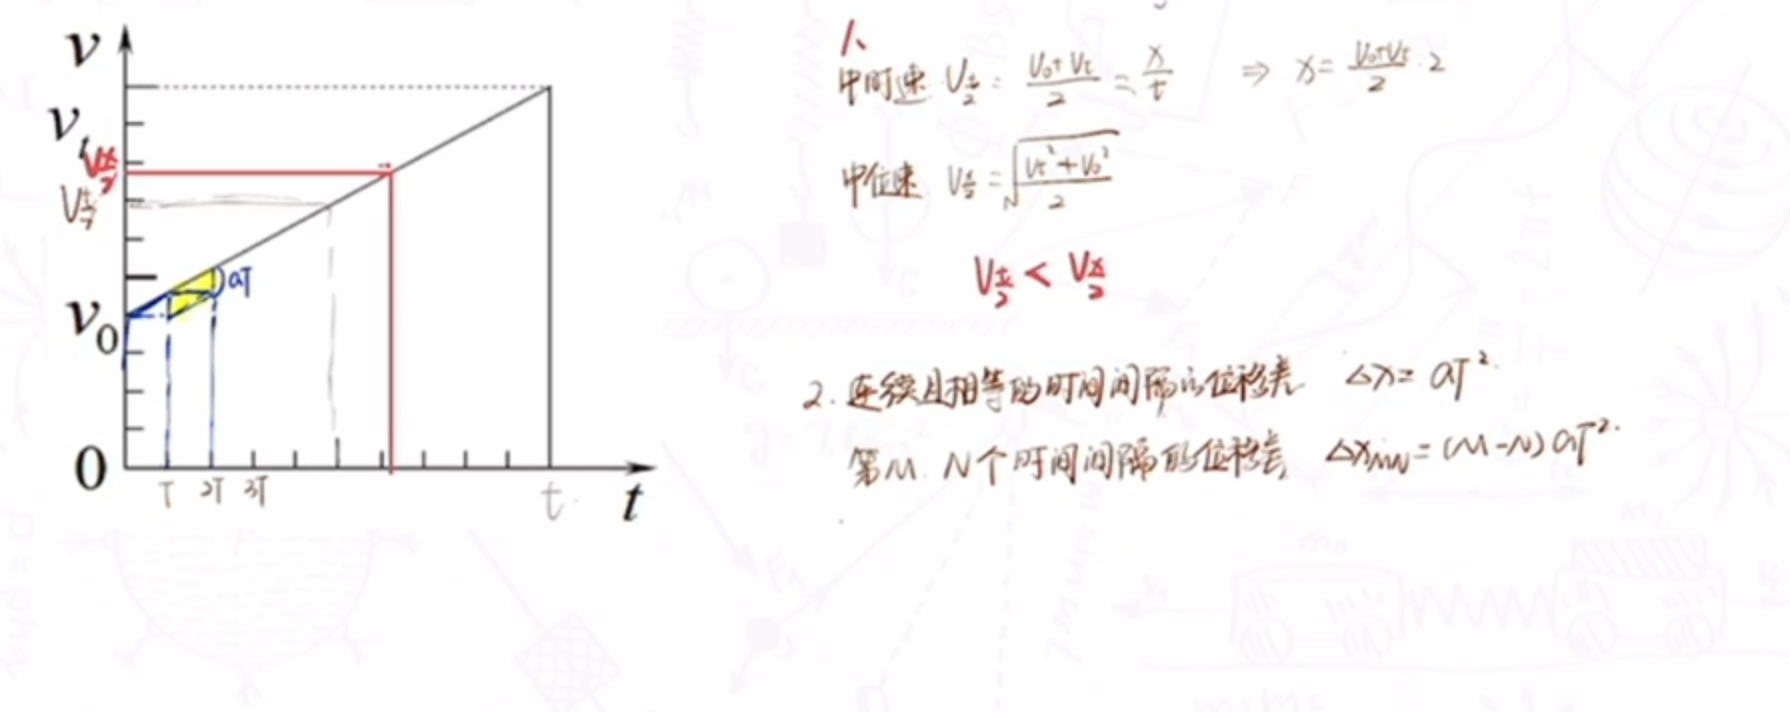 v
v_t
v_{x/2}
v_{t/2}
aT
v_0
0
T 2T 3T
t
t
1、
中时速 V_{t/2} = \frac{V_0+V_t}{2} = \frac{x}{t} ⇒ x = \frac{V_0+V_t}{2}·2
中位速 V_{x/2} = \sqrt{\frac{V_t^2+V_0^2}{2}}
V_{t/2} < V_{x/2}
2. 连续且相等的时间间隔的位移差 Δx = aT².
第M. N个时间间隔的位移差 Δx_{MN} = (M-N) aT².